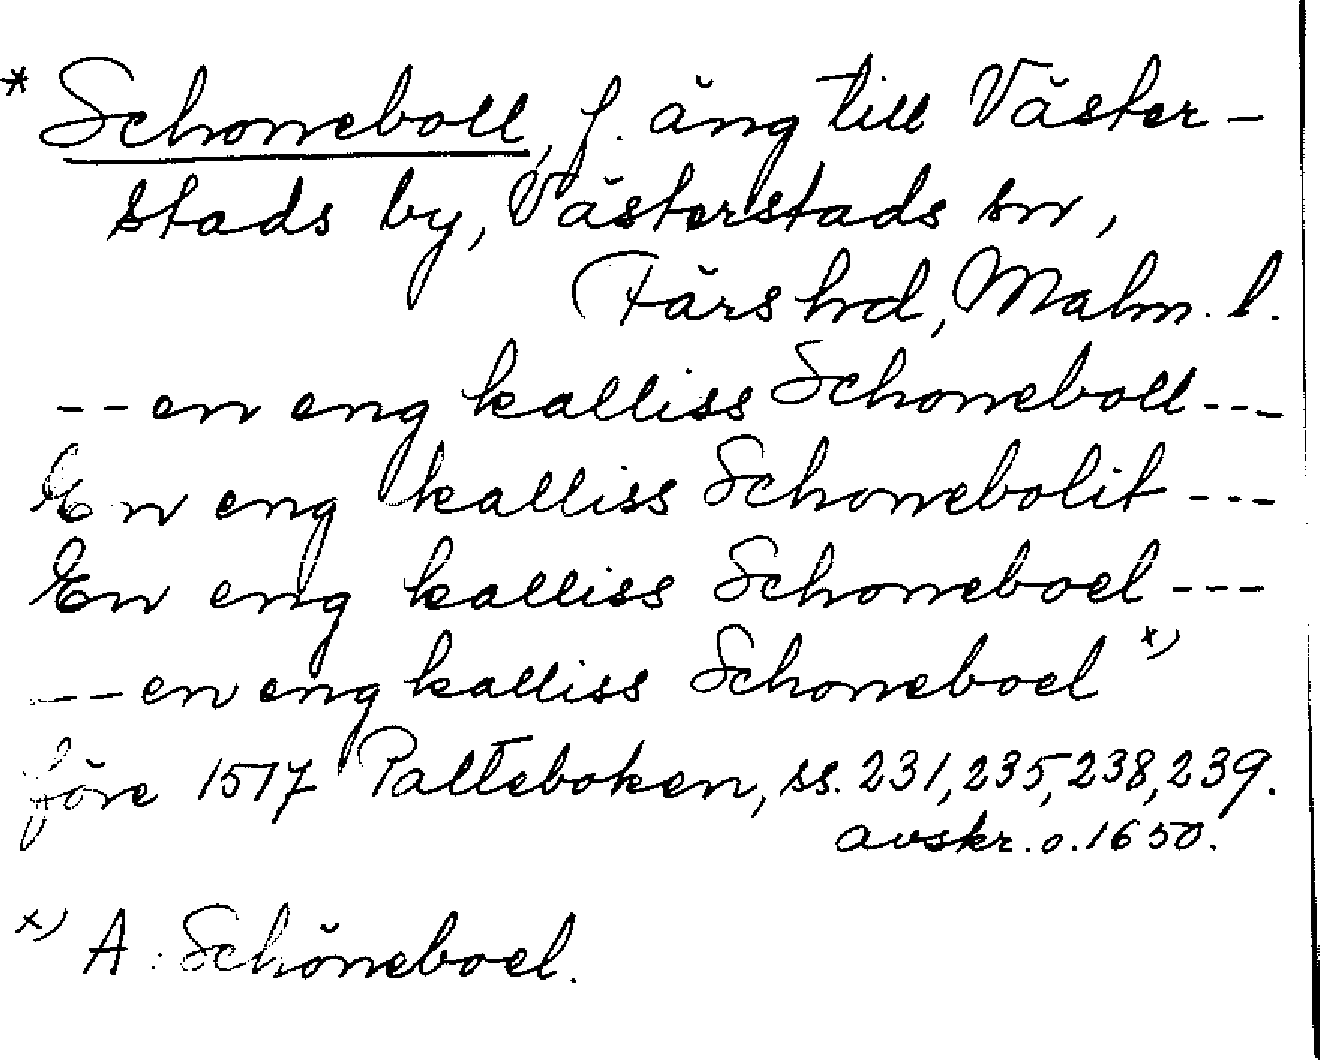 * Schonneboll, f. äng till Väster-
stads by, Västerstads sn,
Färs hd, Malm. l.
-- en eng kalliss Schonneboll ---
En eng kalliss Schonnebolit ---
En eng kalliss Schonneboel ---
-- en eng kalliss Schonneboel x)
före 1517 Palteboken, ss. 231, 235, 238, 239.
avskr. o. 1650.
x) A: Schönneboel.